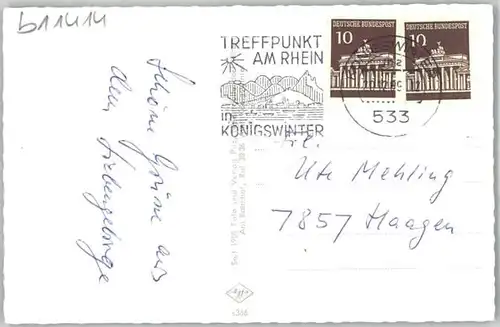 b11414
Schöne Grüße aus
dem Siebengebirge
TREFFPUNKT
AM RHEIN
in
KÖNIGSWINTER
DEUTSCHE BUNDESPOST
10
DEUTSCHE BUNDESPOST
10
533
Frl.
Ute Mehling
7857 Haagen
Agfa